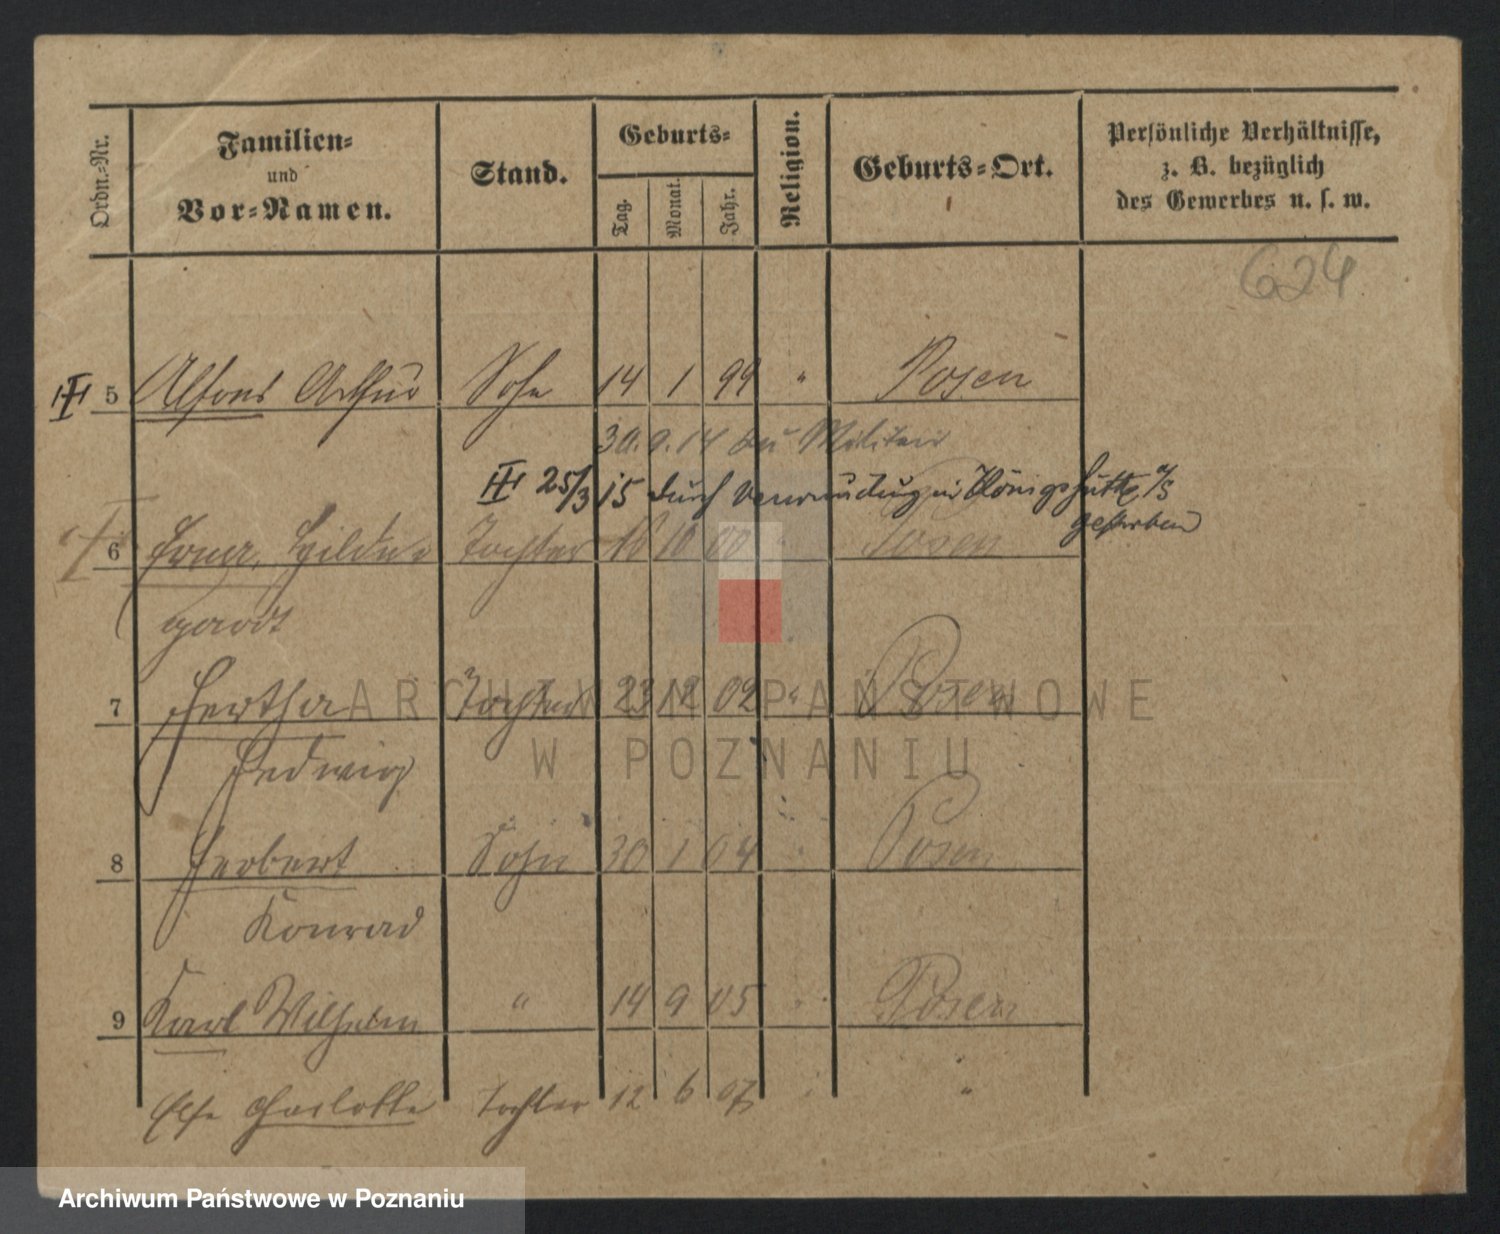 Ordn.-Nr.
Familien-
und
Vor-Namen.
Stand.
Geburts-
Tag.
Monat.
Jahr.
Religion.
Geburts-Ort.
Persönliche Verhältnisse,
z. B. bezüglich
des Gewerbes u. s. w.
624
5 Alfons Arthur Sohn 14 1 99 " Posen
30.9.14 Militair
25/3 15 durch Verwundung in Königshütte O/S
gestorben
6 Erna, Hilde- Tochter 18 10 00 Posen
gardt
7 Hertha Tochter 23 12 02 " Posen
Hedwig
8 Herbert Sohn 30 1 04 " Posen
Konrad
9 Karl Wilhelm " 14 9 05 " Posen
Else Charlotte Tochter 12 6 07 " "
ARCHIWUM PAŃSTWOWE
W POZNANIU
Archiwum Państwowe w Poznaniu